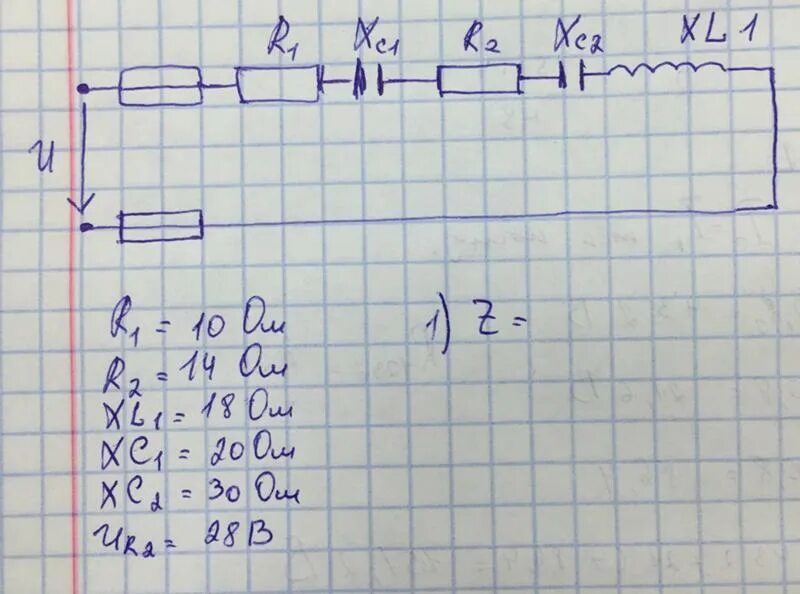 R1 Xc1 R2 Xc2 XL1
U
R1 = 10 Ом
1) Z =
R2 = 14 Ом
XL1 = 18 Ом
XC1 = 20 Ом
XC2 = 30 Ом
UR2 = 28 В